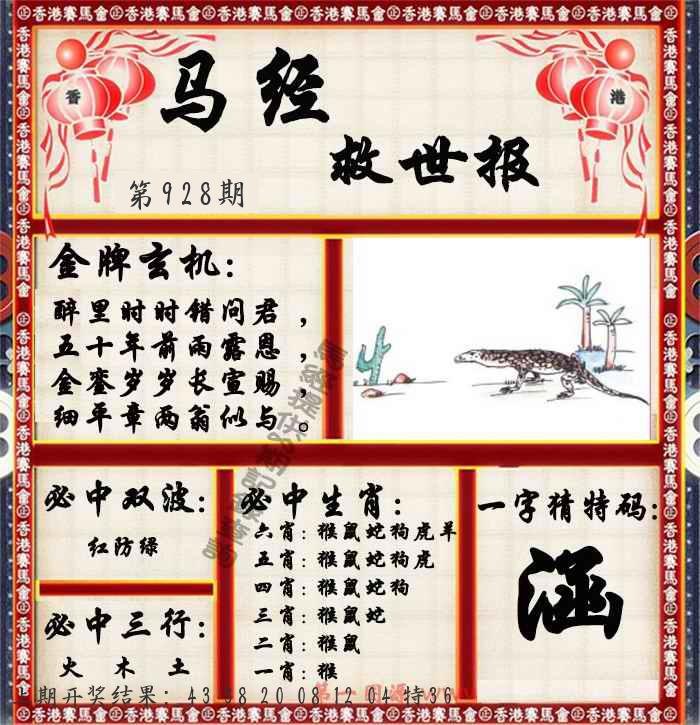 香港賽馬會 香港賽馬會 香港賽馬會 香港賽馬會 香港賽馬會 香港賽馬會 香港賽馬會
香 港
马经
救世报
第928期
金牌玄机：
醉里时时错问君，
五十年前雨露恩，
金銮岁岁长宣赐，
细平章两翁似与。
必中双波：
红防绿
必中三行：
火 木 土
必中生肖：
六肖：猴鼠蛇狗虎羊
五肖：猴鼠蛇狗虎
四肖：猴鼠蛇狗
三肖：猴鼠蛇
二肖：猴鼠
一肖：猴
一字猜特码：
涵
期开奖结果：43 38 20 08 12 04 特36